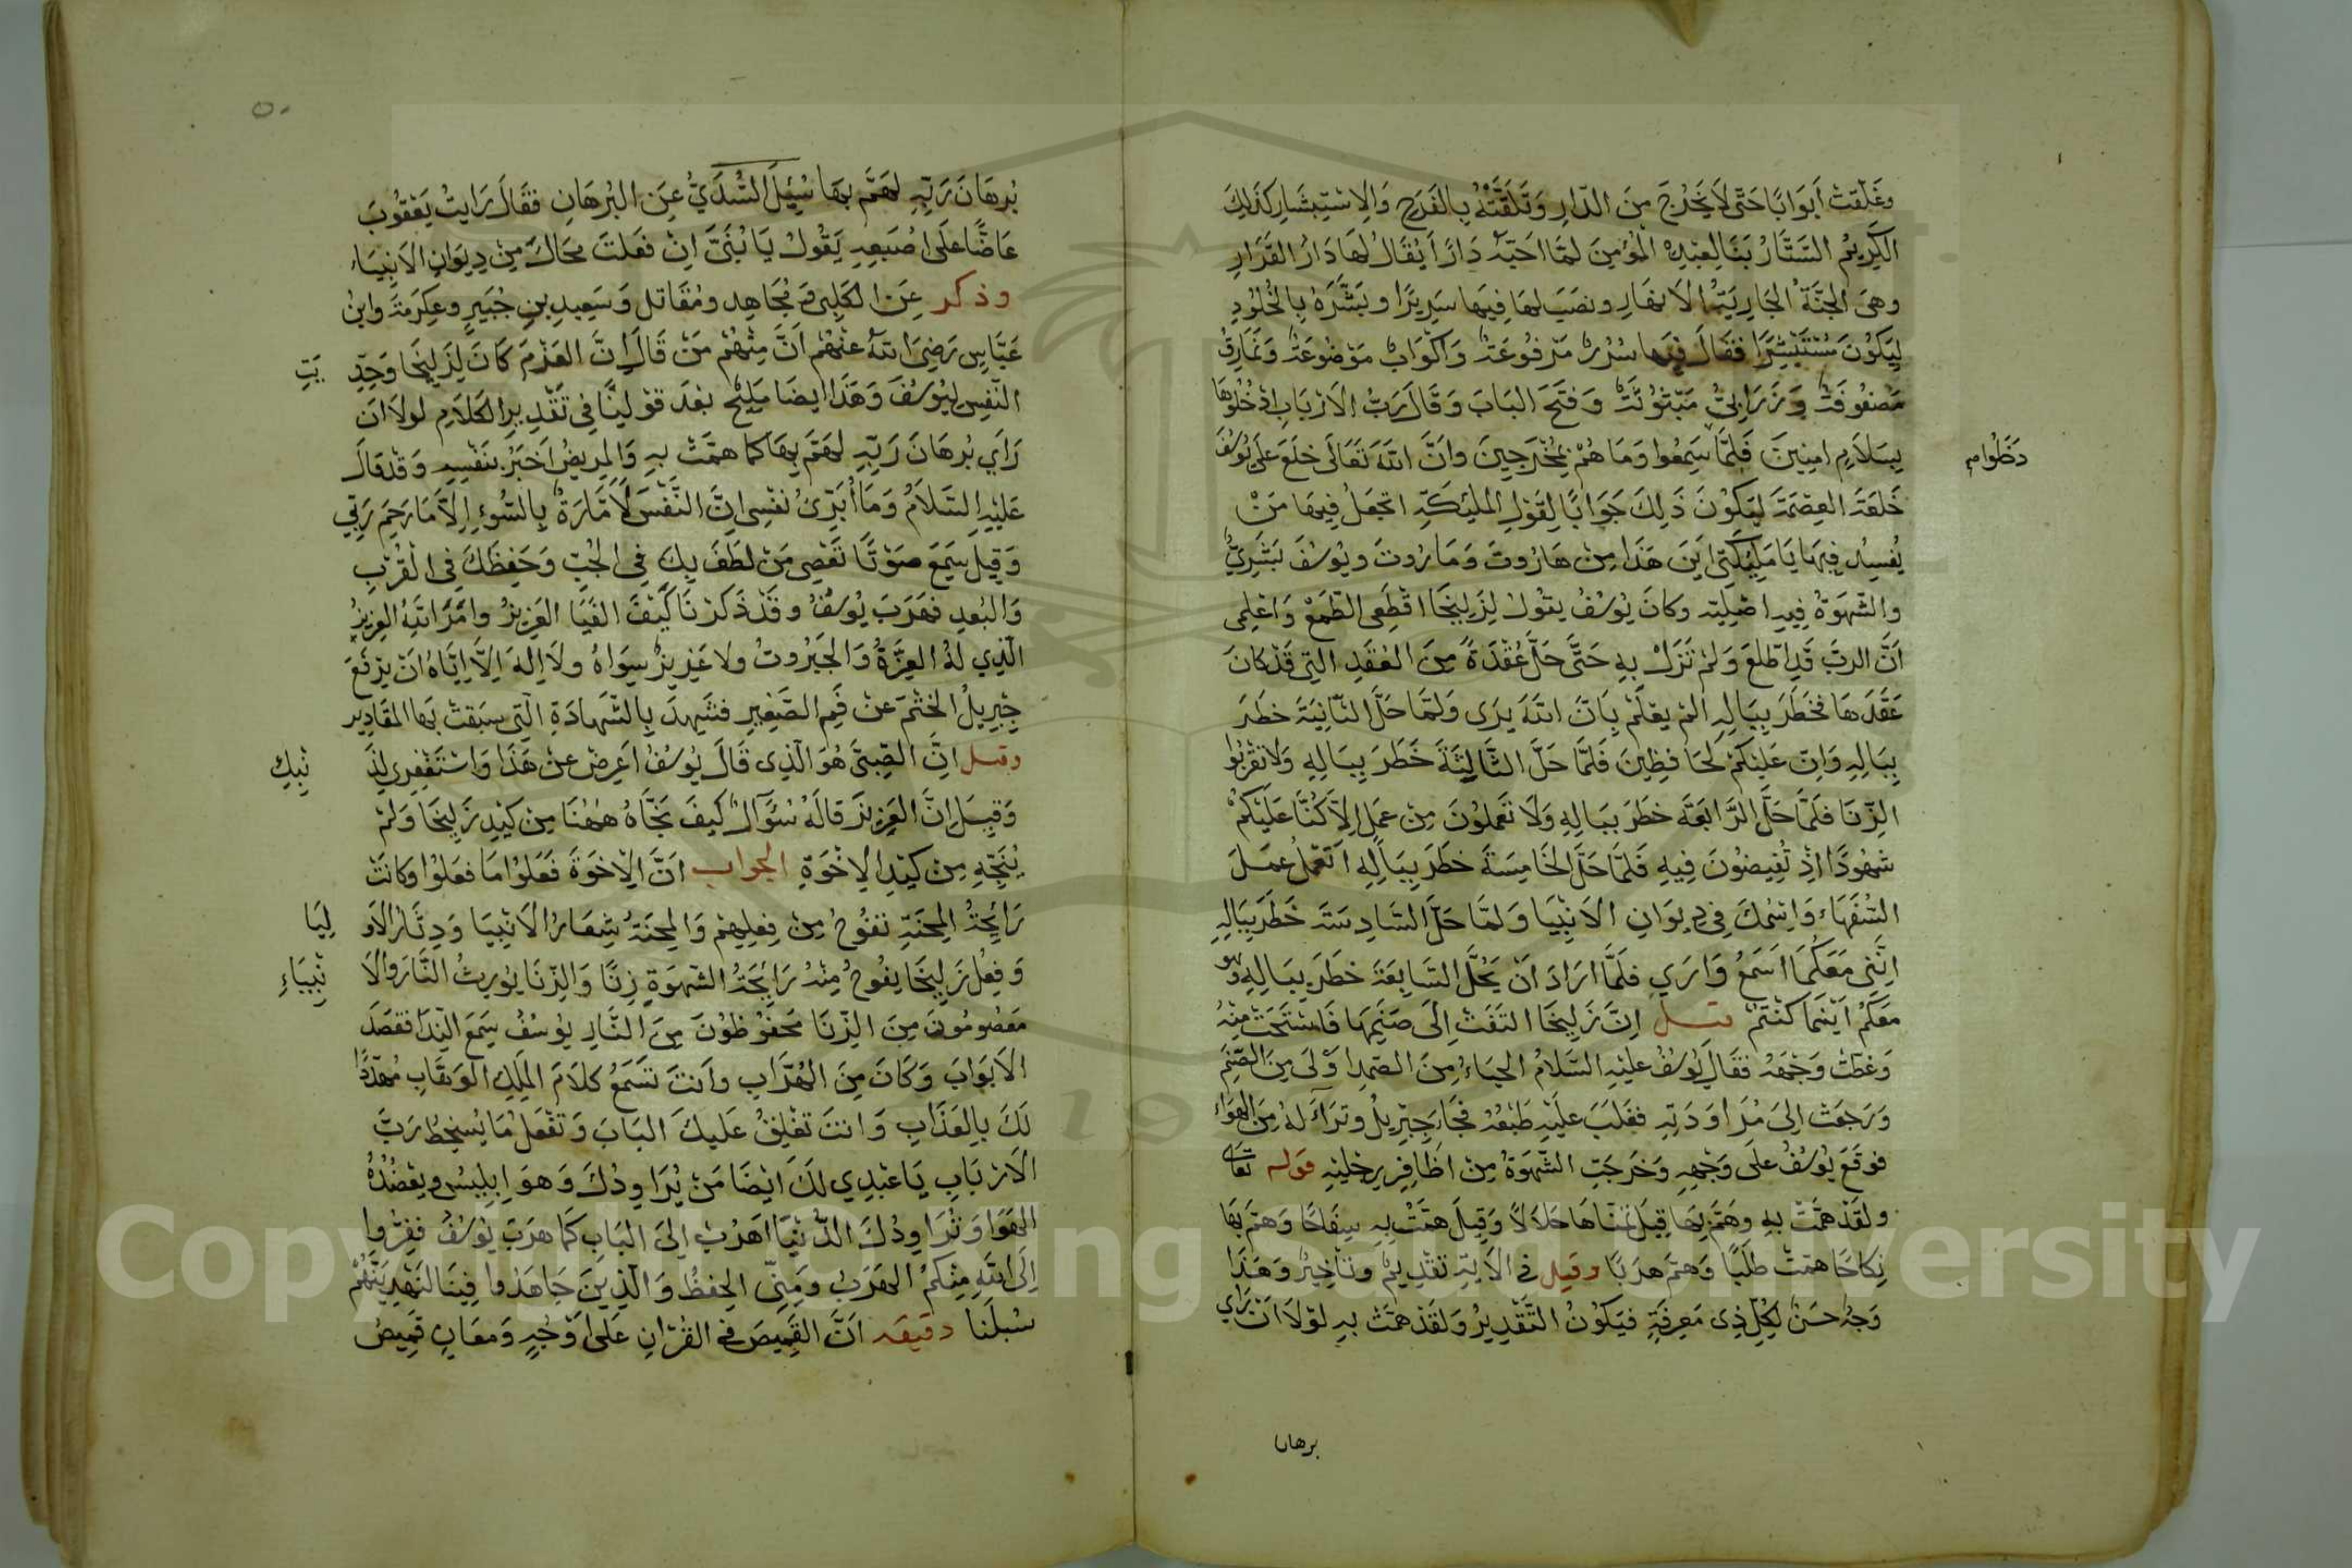 وغَلَّقتْ اَبوَابًا حَتّٰى لَا يَخرُجَ مِنَ الدّارِ وَتَلقَّتْهُ بِالفَرَحِ وَالاِسْتِبشَارِ كَذٰلِكَ
الكَرِيمُ السَّتَّارُ بَنَا لِعَبْدِهِ المُؤمِنَ لمّا احَبّهُ دَارًا يُقَالُ لهَا دَارُ القَرَارِ
وهىَ الجنّةُ الجَاريَةُ الاَنهَارِ ونصَبَ لهَا فِيهَا سَرِيرًا وبَشَّرَهُ بِالخُلُودِ
لِيَكُونَ مُسْتَبْشِرًا فقَالَ فِيهَا سُرُرٌ مَرْفُوعَةٌ وَاكوَابٌ مَوْضُوعَةٌ وَنَمَارِقُ
مَصْفُوفَةٌ وَزَرَابِىُّ مَبْثُوثَةٌ وَفتَحَ البَابَ وَقَالَ رَبُّ الاَرْبَابِ ادْخُلُوهَا
بِسَلَامٍ امِنِينَ فَلمَّا سَمِعُوا وَمَا هُمْ بِمُخْرَجِينَ وانَّ اللهَ تَعَالَى خلَعَ عَلَى يُوسُفَ
دَخَلُوا م
خَلعَةَ العِصْمَةَ لِيَكُونَ ذٰلِكَ جَوَابًا لِقَوْلِ الملٰئِكَةِ اتجعَلُ فِيهَا مَنْ
يُفسِدُ فِيهَا يَا مَلٰئِكَتِى اَينَ هَذَا مِنْ هَارُوتَ وَمَارُوتَ ويُوسُفَ بَشَرِىٌّ
والشّهوَةُ فِيهِ اصْلِيّة وكانَ يُوسُفُ يقُولُ لِزَلِيخَا اقْطَعِى الطّمَعْ وَاعْلِمى
اَنَّ الربَّ قَدِ اطّلعَ وَلمْ تَزَلْ بِهِ حَتَّى حَلَّ عُقْدَةً مِنَ العُقَدِ التِى قَدْ كانَ
عَقَدَهَا فخَطَرَ بِبَالِهِ المْ يعْلَمْ بِاَنَّ اللهَ يَرَى وَلمّا حَلَّ الثّانِيَةَ خطَرَ
بِبَالِهِ وَانّ عَليْكمْ لحَافِظِينَ فَلمّا حَلَّ الثَّالِثَةَ خَطَرَ بِبَالِهِ وَلَا تقْرَبُوا
الزِّنَا فلَمّا حَلَّ الرَّابعَةَ خطَرَ ببَالِهِ وَلَا تعْمَلُونَ مِنْ عمَلٍ اِلاّ كُنَّا عَليْكُمْ
شهُودًا اذْ تُفِيضُونَ فِيهِ فَلمّا حَلَّ الخَامِسَةَ خطَرَ بِبَالِهِ اتعْمَلُ عمَلَ
السُّفَهَاءِ وَاسْمُكَ فِى دِيوَانِ الاَنْبِيَا وَلمّا حَلَّ السَّادِسَةَ خَطَرَ بِبَالِهِ
اِنَّنِى مَعَكُمَا اسْمَعُ وَارَى فلَمَّا ارَادَ انْ يَحُلَّ السَّابِعَةَ خطَرَ بِبَالِهِ وَهو
مَعَكُمْ اَيْنمَا كنْتُمْ قيل اِنَّ زَلِيخَا التَفَتْ اِلَى صَنَمِهَا فَاسْتَحَتْ مِنْهُ
وَغطّتْ وَجْهَهُ فقَالَ يُوسُفُ عَليْهِ السَّلامُ الحيَاءُ مِنَ الصّمِدِ اوْلَى مِنَ الصّنَمِ
وَرَجعَتْ اِلَى مُرَاوَدَتِهِ فغَلبَ عليْهِ طَبْعُهُ فجَاءَ جِبْرِيلُ وتَرَاءَ لهُ مِنَ الهوَاءِ
فوَقَعَ يُوسُفُ علَى وَجْهِهِ وَخرَجَتِ الشّهوَةُ مِنْ اظَافِرِ رِجْليْهِ قوله تعَالى
ولقَدْ همَّتْ بهِ وهَمّ بِهَا قِيلَ تمَنّاهَا حَلَالًا وَقِيلَ همَّتْ بِهِ سِفَاحًا وَهمَّ بهَا
نِكاحًا همّتْ طلَبًا وَهمَّ هرَبًا وقيل فى الآيَةِ تَقْدِيمٌ وتَأخِيرٌ وَهَذا
وَجهٌ حسَنٌ لِكُلِّ ذِى مَعرِفَةٍ فيَكُونُ التَّقْدِيرُ وَلقَدْ همّتْ بهِ لوْلَا اَنْ رَاى
برهان
٥٠
بُرهَانَ رَبّهِ لهَمَّ بهَا سُئِلَ السُّدّىُّ عَنِ البُرهَانِ فقَالَ رَايْتُ يَعْقُوبَ
عَاضًّا عَلَى اصْبَعِهِ يَقُولُ يَا بُنَىَّ اِنْ فعَلتَ محَاكَ مِنْ دِيوَانِ الاَنبِيَاءِ
وذكر عَنِ الكَلبِى ومُجَاهِدٍ ومُقَاتلٍ وَسَعِيدِ بنِ جُبَيرٍ وعِكرَمَةَ وابنُ
عَبّاسٍ رَضِىَ اللهُ عَنهُمْ اَنَّ مِنْهُمْ مَنْ قَالَ اِنَّ العَزْمَ كَانَ لِزَلِيخَا وَحَدِ يَثِ
النّفسِ لِيُوسُفَ وَهَذَا ايضًا مَلِيحٌ بعْدَ قوْلِينَا فِى تَقْدِيرِ الكلَامِ لولَا اَن
رَاَى بُرهَانَ رَبّهِ لهَمَّ بِهَا كمَا همَّتْ بهِ وَالمرِيضُ اخبَرُ بنَفْسِهِ وَقدْ قَالَ
عَليْهِ السَّلَامُ وَمَا اُبَرِّئُ نفْسِى اِنَّ النّفْسَ لَاَمَّارَةٌ بِالسُّوءِ اِلاَّ مَا رَحِمَ رَبّى
وَقِيلَ سَمِعَ صَوْتًا تَعْصِى مَنْ لطَفَ بِكَ فِى الجُبِّ وَحَفِظَكَ فِى القُرْبِ
وَالبُعدِ فهَرَبَ يُوسُفُ وقَدْ ذَكَرْنَا كَيْفَ الفَيَا العَزِيزُ وامَرَ اللهُ العزِيزُ
الّذِى لهُ العِزَّةُ وَالجَبَرُوتُ ولَا عَزِيزٌ سِوَاهُ ولَا اِلٰهَ اِلاَّ اِيَّاهُ اَنْ يَرْفَعَ
جِبْرِيلُ الختْمَ عَنْ فَمِ الصَّغِيرِ فشَهِدَ بِالشّهادَةِ الّتِى سبَقَتْ بهَا المقَادِير
وقيل انَّ الصَّبِىَّ هُوَ الّذِى قَالَ يُوسُفُ اَعرِضْ عنْ هَذَا وَاسْتَغْفِرِى لِذَ نْبِكِ
وَقِيلَ اِنَّ العَزِيزَ قالَهُ سُؤَالٌ كَيفَ نَجَّاهُ هٰهُنَا مِنْ كَيْدِ زَلِيخَا وَلمْ
يُنَجِّهِ مِنْ كَيْدِ الاِخْوَةِ الجواب اَنَّ الاِخوَةَ فَعَلوْا مَا فعَلُوا وكَانَتْ
رَائِحَةُ المِحْنَةِ تفُوحُ مِنْ فِعلِهِمْ وَالمِحنَةُ شِعَارُ الاَنْبِيَا وَدِثَارُ الاَوْ لِيَا
وَفِعْلُ زَلِيخَا يفُوحُ مِنْهُ رَائحَةُ الشّهوَةِ زِنًا وَالزّنَا يُورِثُ النّارَ وَالاَ نْبِيَاءِ
مَعْصُومُونَ مِنَ الزّنَا مَحْفُوظُونَ مِنَ النَّارِ يُوسُفُ سَمِعَ النِّدَا فقصَدَ
الاَبوَابَ وَكَانَ مِنَ الهُرَّابِ واَنتَ تَسْمَعُ كلَامَ المَلِكِ الوَهّابِ مُهدِّدًا
لَكَ بِالعَذَابِ وَانتَ تغْلِقُ عَليكَ البَابَ وَتَفْعَلُ مَا يُسْخِطُ رَبَّ
الاَرْبَابِ يَا عَبْدِى لكَ ايْضًا مَنْ يُرَاوِدُكَ وَهوَ اِبلِيسُ ويعْضُدُهُ
الهوَا وَتُرَاوِدُكَ الدُّنْيَا اهْرُبْ اِلىَ البَابِ كمَا هرَبَ يُوسُفُ ففِرُّوا
اِلَى اللهِ مِنكُمُ الهرَبُ ومِنّى الحِفظُ وَالّذِينَ جَاهَدُوا فِينَا لنَهْدِيَنَّهُمْ
سُبلَنَا دقيقه اَنَّ القَمِيصَ فى القُرْانِ عَلَى اوْجُهٍ وَمعَانٍ قَمِيصُ
Copyright © King Saud University